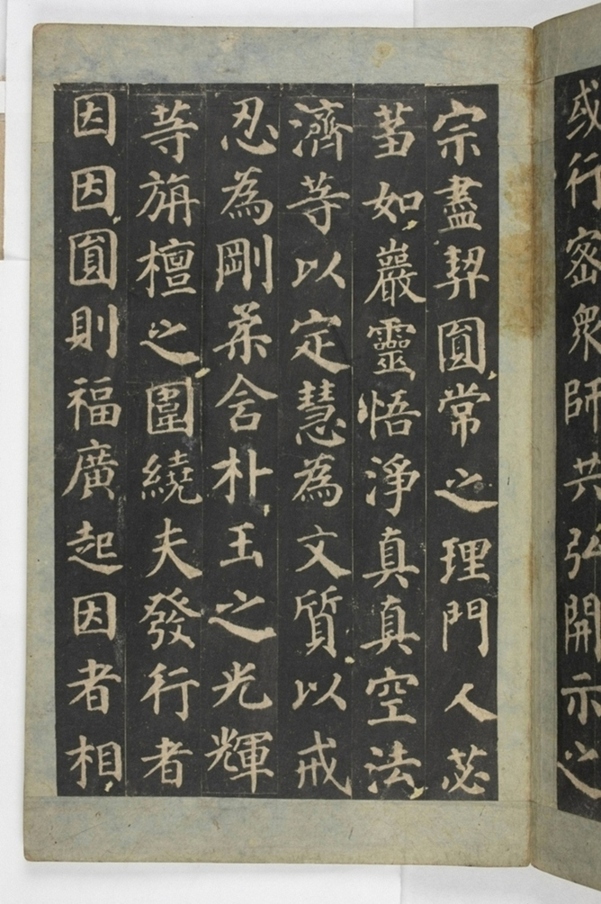 或行密眾師共弘開示之
宗盡契圓常之理門人苾
蒭如巖靈悟淨真真空法
濟等以定慧為文質以戒
忍為剛柔含朴玉之光輝
等旃檀之圍繞夫發行者
因因圓則福廣起因者相